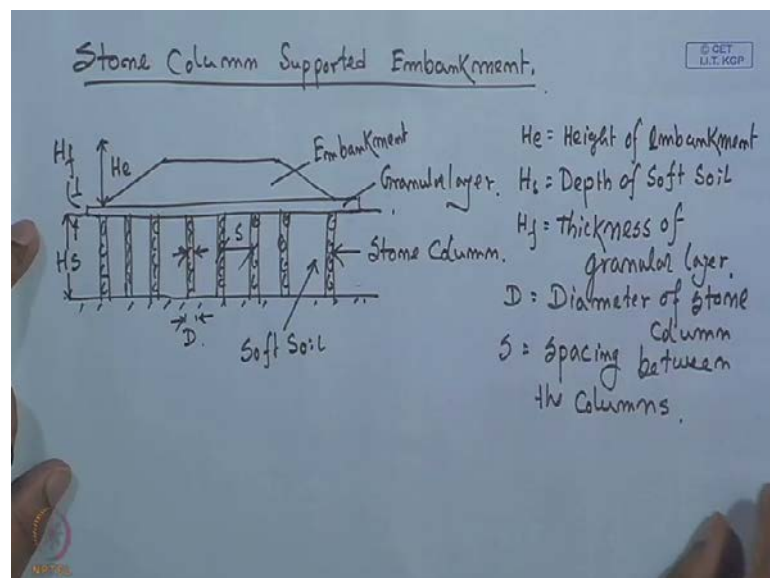 Stone Column Supported Embankment.
© CET
I.I.T. KGP
Embankment
Granular layer.
Hf
He
Hs
S
Stone Column.
D.
Soft Soil
He = Height of Embankment
Hs = Depth of Soft Soil
Hf = Thickness of
granular layer.
D = Diameter of stone
column
S = Spacing between
the columns.
NPTEL